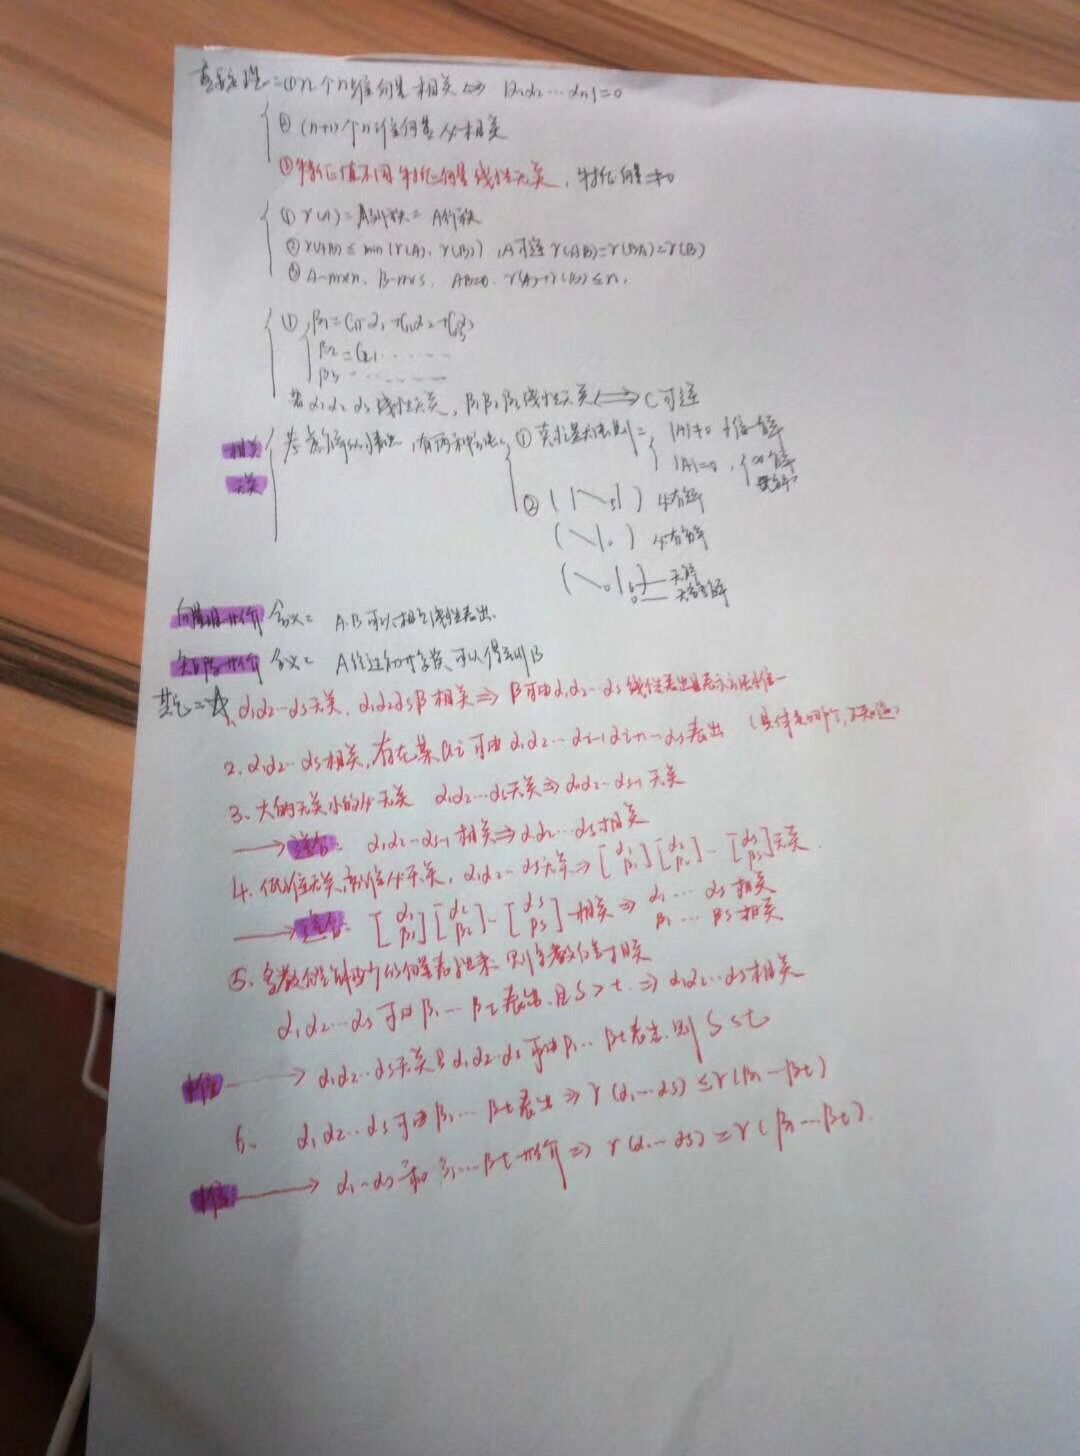 ①n个n维向量相关⇔ |α₁α₂…αn|=0
② (n+1)个n维向量必相关
③特征值不同特征向量线性无关,特征向量≠0
① r(A)=A列秩=A行秩
② r(AB)≤min(r(A), r(B)), A可逆 r(AB)=r(BA)=r(B)
③ A-m×n, B-n×s, AB=0, r(A)+r(B)≤n,
① β₁=C₁₁α₁+C₁₂α₂+C₁₃α₃
β₂=C₂₁……
β₃……
若α₁α₂α₃线性无关, β₁β₂β₃线性无关⇔C可逆
相关
无关
有两种方法 ① 克拉默法则= |A|≠0 唯一解
|A|=0, ∞解
无解
② 必有解
必有解
无解
向量组等价 含义= A.B可以相互线性表出.
矩阵等价 含义= A经过初等变换可以得到B
其它=
1. α₁α₂…αs无关, α₁α₂αsβ相关⇒β可由α₁α₂…αs线性表出且表示方法唯一
2. α₁α₂…αs相关,存在某αi可由α₁α₂…αi-1αi+1…αs表出 (具体是哪个,不知道)
3. 大的无关小的必无关 α₁α₂…αs无关⇒α₁α₂…αs-1无关
→逆否: α₁α₂…αs-1相关⇒α₁α₂…αs相关
4. 低维无关,高维必无关, α₁α₂…αs无关⇒[α₁ β₁][α₂ β₂]…[αs βs]无关.
→逆否: [α₁ β₁][α₂ β₂]…[αs βs]相关⇒ α₁…αs相关
β₁…βs相关
⑤. 多数向量能由少的向量表出来,则多数向量相关
α₁α₂…αs可由β₁…βt表出,且s>t.⇒α₁α₂…αs相关
推 → α₁α₂…αs无关且α₁α₂…αs可由β₁…βt表出,则s≤t
6. α₁α₂…αs可由β₁…βt表出⇒r(α₁…αs)≤r(β₁…βt)
推 → α₁…αs和β₁…βt等价⇒r(α₁…αs)=r(β₁…βt).